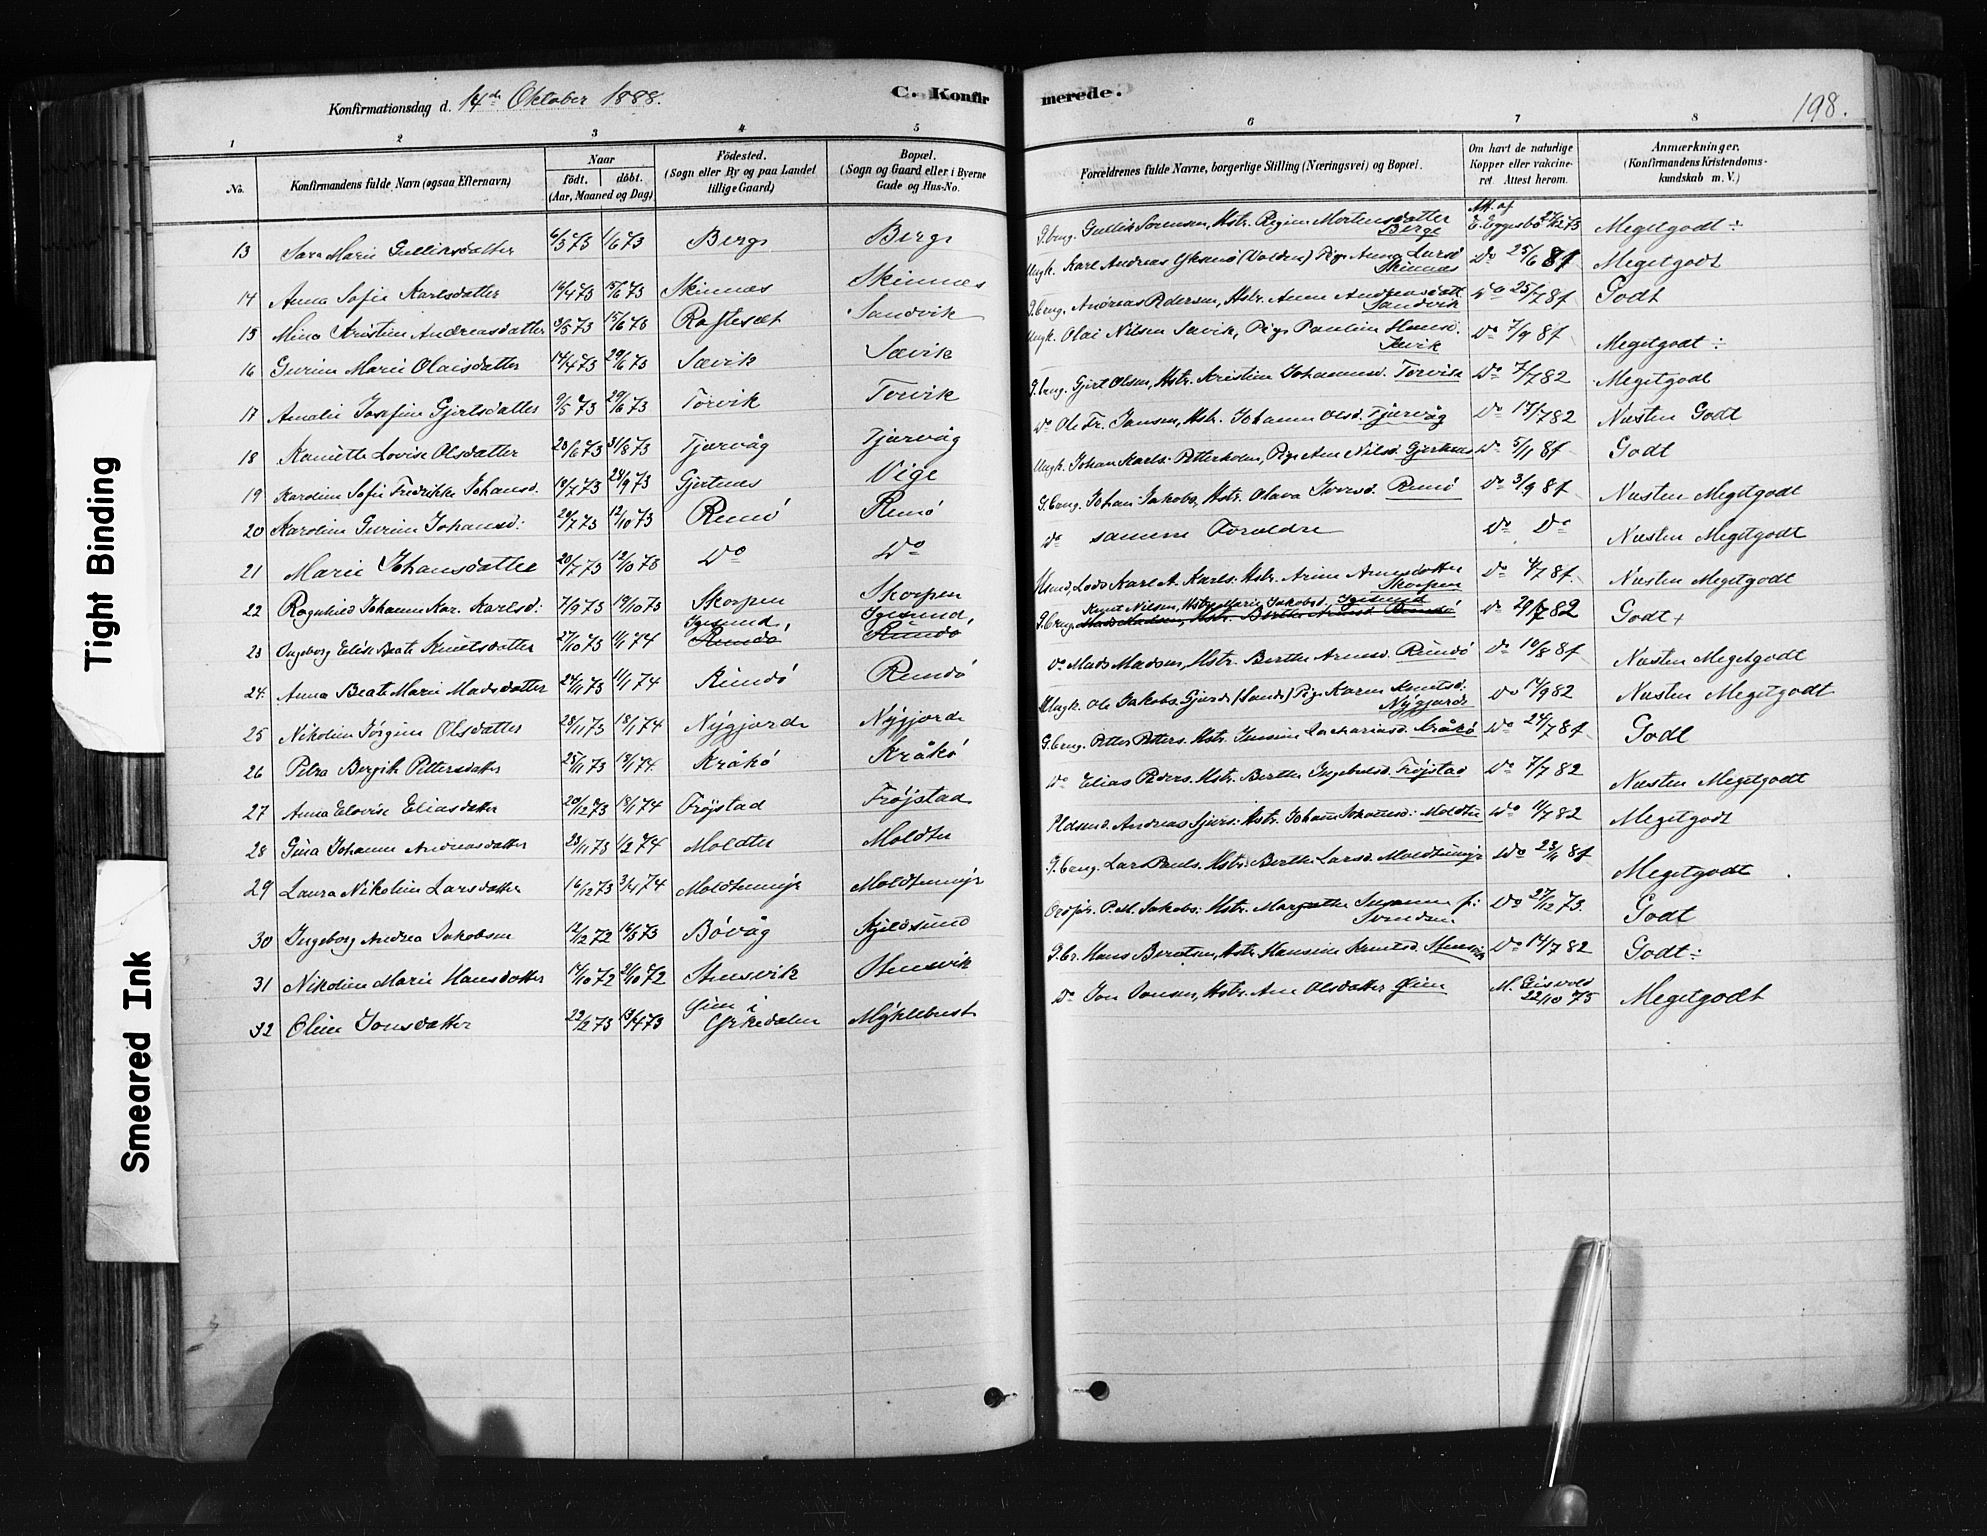 Konfirmationsdag d. 14de Oktober 1888.
C. Konfirmerede.
198.
1 2 3 4 5 6 7 8
No. Konfirmandens fulde Navn (ogsaa Efternavn) Naar født. døbt. (Aar, Maaned og Dag) Fødested. (Sogn eller By og paa Landet tillige Gaard) Bopæl. (Sogn og Gaard eller i Byerne Gade og Hus-No. Forældrenes fulde Navne, borgerlige Stilling (Næringsvei) og Bopæl. Om havt de naturlige Kopper eller vakcineret. Attest herom. Anmærkninger. (Konfirmandens Kristendomskundskab m. V.)
13 Sara Marie Gulliksdatter 6/3 73 1/6 73 Berge Berge G.brug. Gullik Sorensen, Hstr. Regine Mortensdatter Berge Att. af E. Eggesbø 27/12 75 Megetgodt ÷
14 Anna Sofie Karlsdatter 16/4 73 15/6 73 Skinnes Skinnes Ungk. Karl Andreas (Volden) Pige Anna Larsd. Skinnes Do 25/6 81 Megetgodt
15 Mina Kristine Andreasdatter 9/5 73 15/6 73 Raftesæt Sandvik G.brug. Andreas Pedersen, Hstr. Anne Andreasdatt. Sandvik Do 25/7 81 Godt
16 Gurine Marie Olaisdatter 14/4 73 29/6 73 Sævik Sævik Ungk. Olai Nilsen Sævik, Pige Pauline Hansd. Sævik Do 7/9 81 Megetgodt ÷
17 Amalie Josefine Gjertsdatter 9/5 73 29/6 73 Torvik Torvik G.brug. Gjert Olsen, Hstr. Kristine Johannesd. Torvik Do 7/7 82 Megetgodt
18 Kamitte Lovise Olsdatter 20/6 73 31/8 73 Tjærvåg Tjærvåg Do Ole Fr. Jansen, Hstr. Johanne Olsd. Tjærvåg Do 17/7 82 Næsten Godt
19 Karoline Sofie Fredrikke Johansd. 10/7 73 24/9 73 Gjertnes Vige Ungk. Johan Karls. Petterholm, Pige Ane Nilsd. Gjertnes Do 5/11 81 Godt
20 Karoline Gurine Johansd: 20/7 73 12/10 73 Remø Remø G.brug. Johan Jakobs, Hstr. Olava Iversd. Remø Do 3/9 81 Næsten Megetgodt
21 Marie Johansdatter 20/7 73 12/10 73 Do Do Do samme Foreldre Do Do Næsten Megetgodt
22 Ragnhild Johanne Kar. Karlsd: 7/9 73 19/10 73 Skorpen Skorpen Karl A. Karls: Hstr. Arine Arnesdatter Skorpen Do 4/7 81 Næsten Megetgodt
23 Ingeborg Elise Beate Knutsdatter 27/10 73 11/1 74 Igesund, Rundø Igesund, Rundø G.brug. Knut Nilsen, Hstr. Marie Jakobsd. Igesund Mads Madsen, Hstr. Berthe Arnesd. Rundø Do 29/7 82 Godt +
24. Anna Beate Marie Madsdatter 24/11 73 11/1 74 Rundø Rundø Do Mads Madsen, Hstr. Berthe Arnesd. Rundø Do 10/8 81 Næsten Megetgodt
25 Nikoline Jørgine Olsdatter 28/11 73 18/1 74 Nygjerde Nygjerde Ungk. Ole Jakobs. Gjerde (Sande) Pige Karen Knutsd: Nygjerde Do 14/9 82 Næsten Megetgodt
26 Petra Bergite Pettersdatter 25/11 73 19/1 74. Kråkø Kråkø G.brug. Petter Petters. Hstr. Jensine Zachariasd. Kråkø Do 24/7 81 Godt
27 Anna Elovise Eliasdatter 20/12 73 18/1 74 Frøjstad Frøjstad Do Elias Peders. Hstr. Berthe Ingebrigtsd. Frøjstad Do 7/7 82 Næsten Megetgodt
28 Gina Johanne Andreasdatter 23/11 73 1/2 74 Moldtu Moldtu Pldsmd. Andreas Sjurs. Hstr. Johanne Johannesd: Moldtu Do 11/7 82 Megetgodt
29 Laura Nikoline Larsdatter 16/12 73 3/4 74 Moldtumyr Moldtumyr G.brug. Lars Pauls. Hstr: Berthe Larsd. Moldtumyr Do 28/11 81 Megetgodt
30 Ingeborg Andrea Jakobsen 12/12 72 16/3 73 Bøvåg Kjeldsund P.M. Jakobs: Hstr. Margrethe Susanne f: Svendsen Do 27/12 73. Godt
31 Nikoline Marie Hansdatter 14/10 72 21/10 72 Stensvik Stensvik G.br. Hans Berntsen, Hstr. Hansine Knutsd. Stensvik Do 14/7 82 Godt ÷
32 Oline Jonsdatter 22/2 73 13/4 73 Gien i Ørkedalen Myklebust Do Jon Jonsen, Hstr. Ane Olsdatter Gien M. Gisvold 22/10 75 Megetgodt
Tight Binding
Smeared Ink